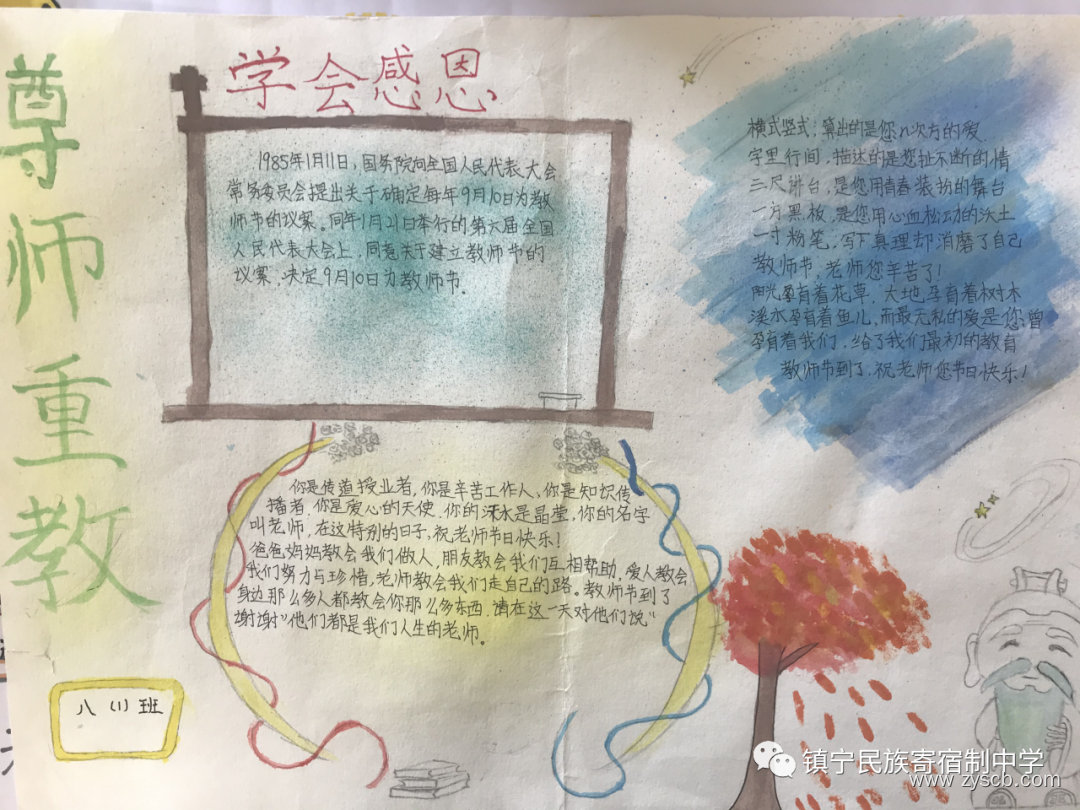 尊师重教
学会感恩
1985年1月11日，国务院向全国人民代表大会
常务委员会提出关于确定每年9月10日为教
师节的议案。同年1月21日举行的第六届全国
人民代表大会上，同意关于建立教师节的
议案，决定9月10日为教师节。
横式竖式；算出的是您n次方的爱
字里行间，描达的是您扯不断的情
三尺讲台，是您用青春装扮的舞台
一方黑板，是您用心血松动的沃土
一寸粉笔，写下真理却消磨了自己
教师节，老师您辛苦了！
阳光孕育着花草，大地孕育着树木
溪水孕育着鱼儿，而最无私的爱是您，曾
孕育着我们，给了我们最初的教育
教师节到了，祝老师您节日快乐！
你是传道授业者，你是辛苦工作人、你是知识传
播者，你是爱心的天使，你的汗水是晶莹，你的名字
叫老师，在这特别的日子，祝老师节日快乐！
爸爸妈妈教会我们做人，朋友教会我们互相帮助，爱人教会
我们努力与珍惜，老师教会我们走自己的路。教师节到了
身边那么多人都教会你那么多东西，请在这一天对他们说“
谢谢”他们都是我们人生的老师。
八（1）班
镇宁民族寄宿制中学
www.zyscb.com